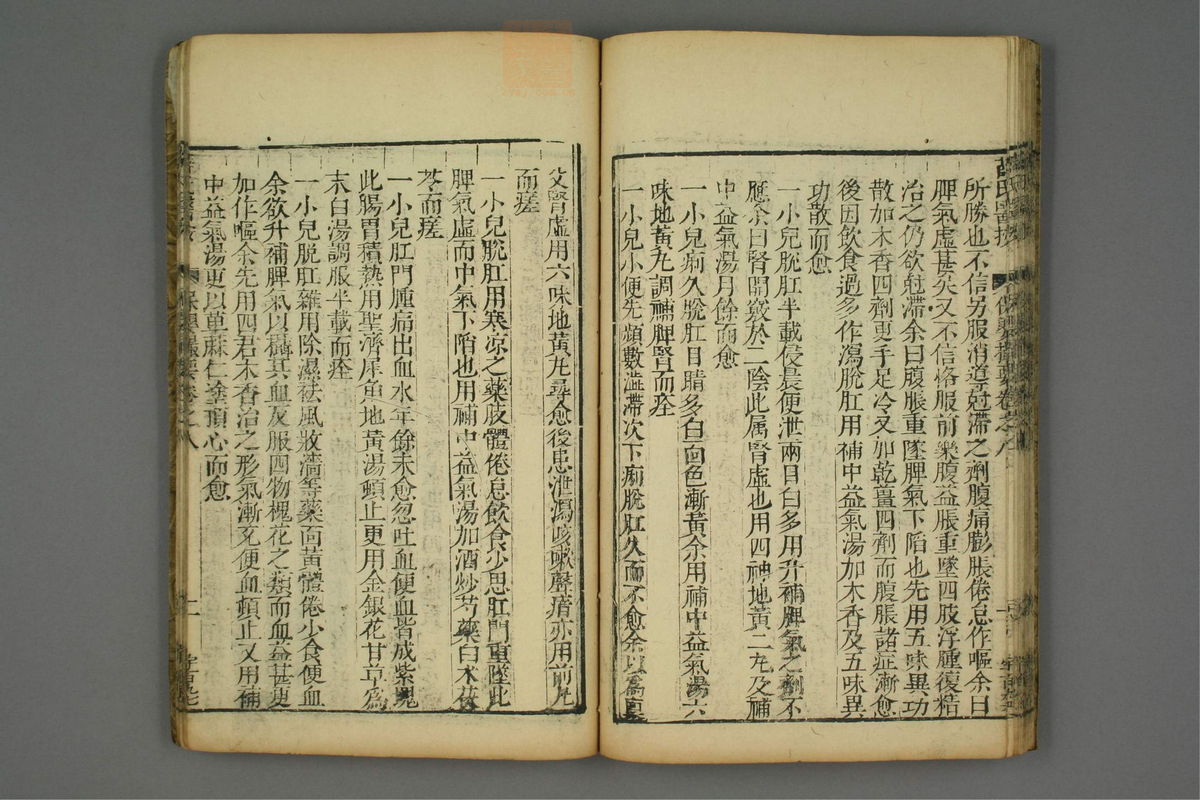 薛氏醫按 保嬰撮要卷之八
所勝也不信另服消導尅滯之劑腹痛膨脹倦怠作嘔余曰
脾氣虛甚矣又不信恪服前藥腹益脹重墜四肢浮腫復請
治之仍欲尅滯余曰腹脹重墜脾氣下陷也先用五味異功
散加木香四劑更手足冷又加乾薑四劑而腹脹諸症漸愈
後因飲食過多作瀉脫肛用補中益氣湯加木香及五味異
功散而愈
一小兒脫肛半載侵晨便泄兩目白多用升補脾氣之劑不
應余曰腎開竅於二陰此属腎虛也用四神地黃二丸及補
中益氣湯月餘而愈
一小兒痢久脫肛目睛多白面色漸黃余用補中益氣湯六
味地黃丸調補脾腎而痊
一小兒小便先頻數澁滯次下痢脫肛久而不愈余以爲稟
父腎虛用六味地黃丸尋愈後患泄瀉咳嗽聲瘖亦用前丸
而瘥
一小兒脫肛用寒凉之藥肢體倦怠飲食少思肛門重墜此
脾氣虛而中氣下陷也用補中益氣湯加酒炒芍藥白朮茯
苓而瘥
一小兒肛門腫痛出血水年餘未愈忽吐血便血皆成紫塊
此腸胃積熱用聖濟犀角地黃湯頓止更用金銀花甘草為
末白湯調服半載而痊
一小兒脫肛雜用除濕祛風收濇等藥面黃體倦少食便血
余欲升補脾氣以攝其血反服四物槐花之類而血益甚更
加作嘔余先用四君木香治之形氣漸充便血頓止又用補
中益氣湯更以萆麻仁塗頂心而愈
保嬰撮要卷之八